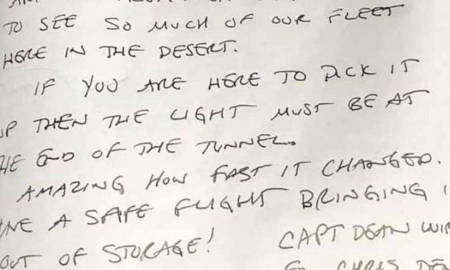 TO SEE SO MUCH OF OUR FLEET
HERE IN THE DESERT.
IF YOU ARE HERE TO PICK IT
UP THEN THE LIGHT MUST BE AT
HE END OF THE TUNNEL.
AMAZING HOW FAST IT CHANGED.
A SAFE FLIGHT BRINGING
OUT OF STORAGE! CAPT DEAN
CHRIS